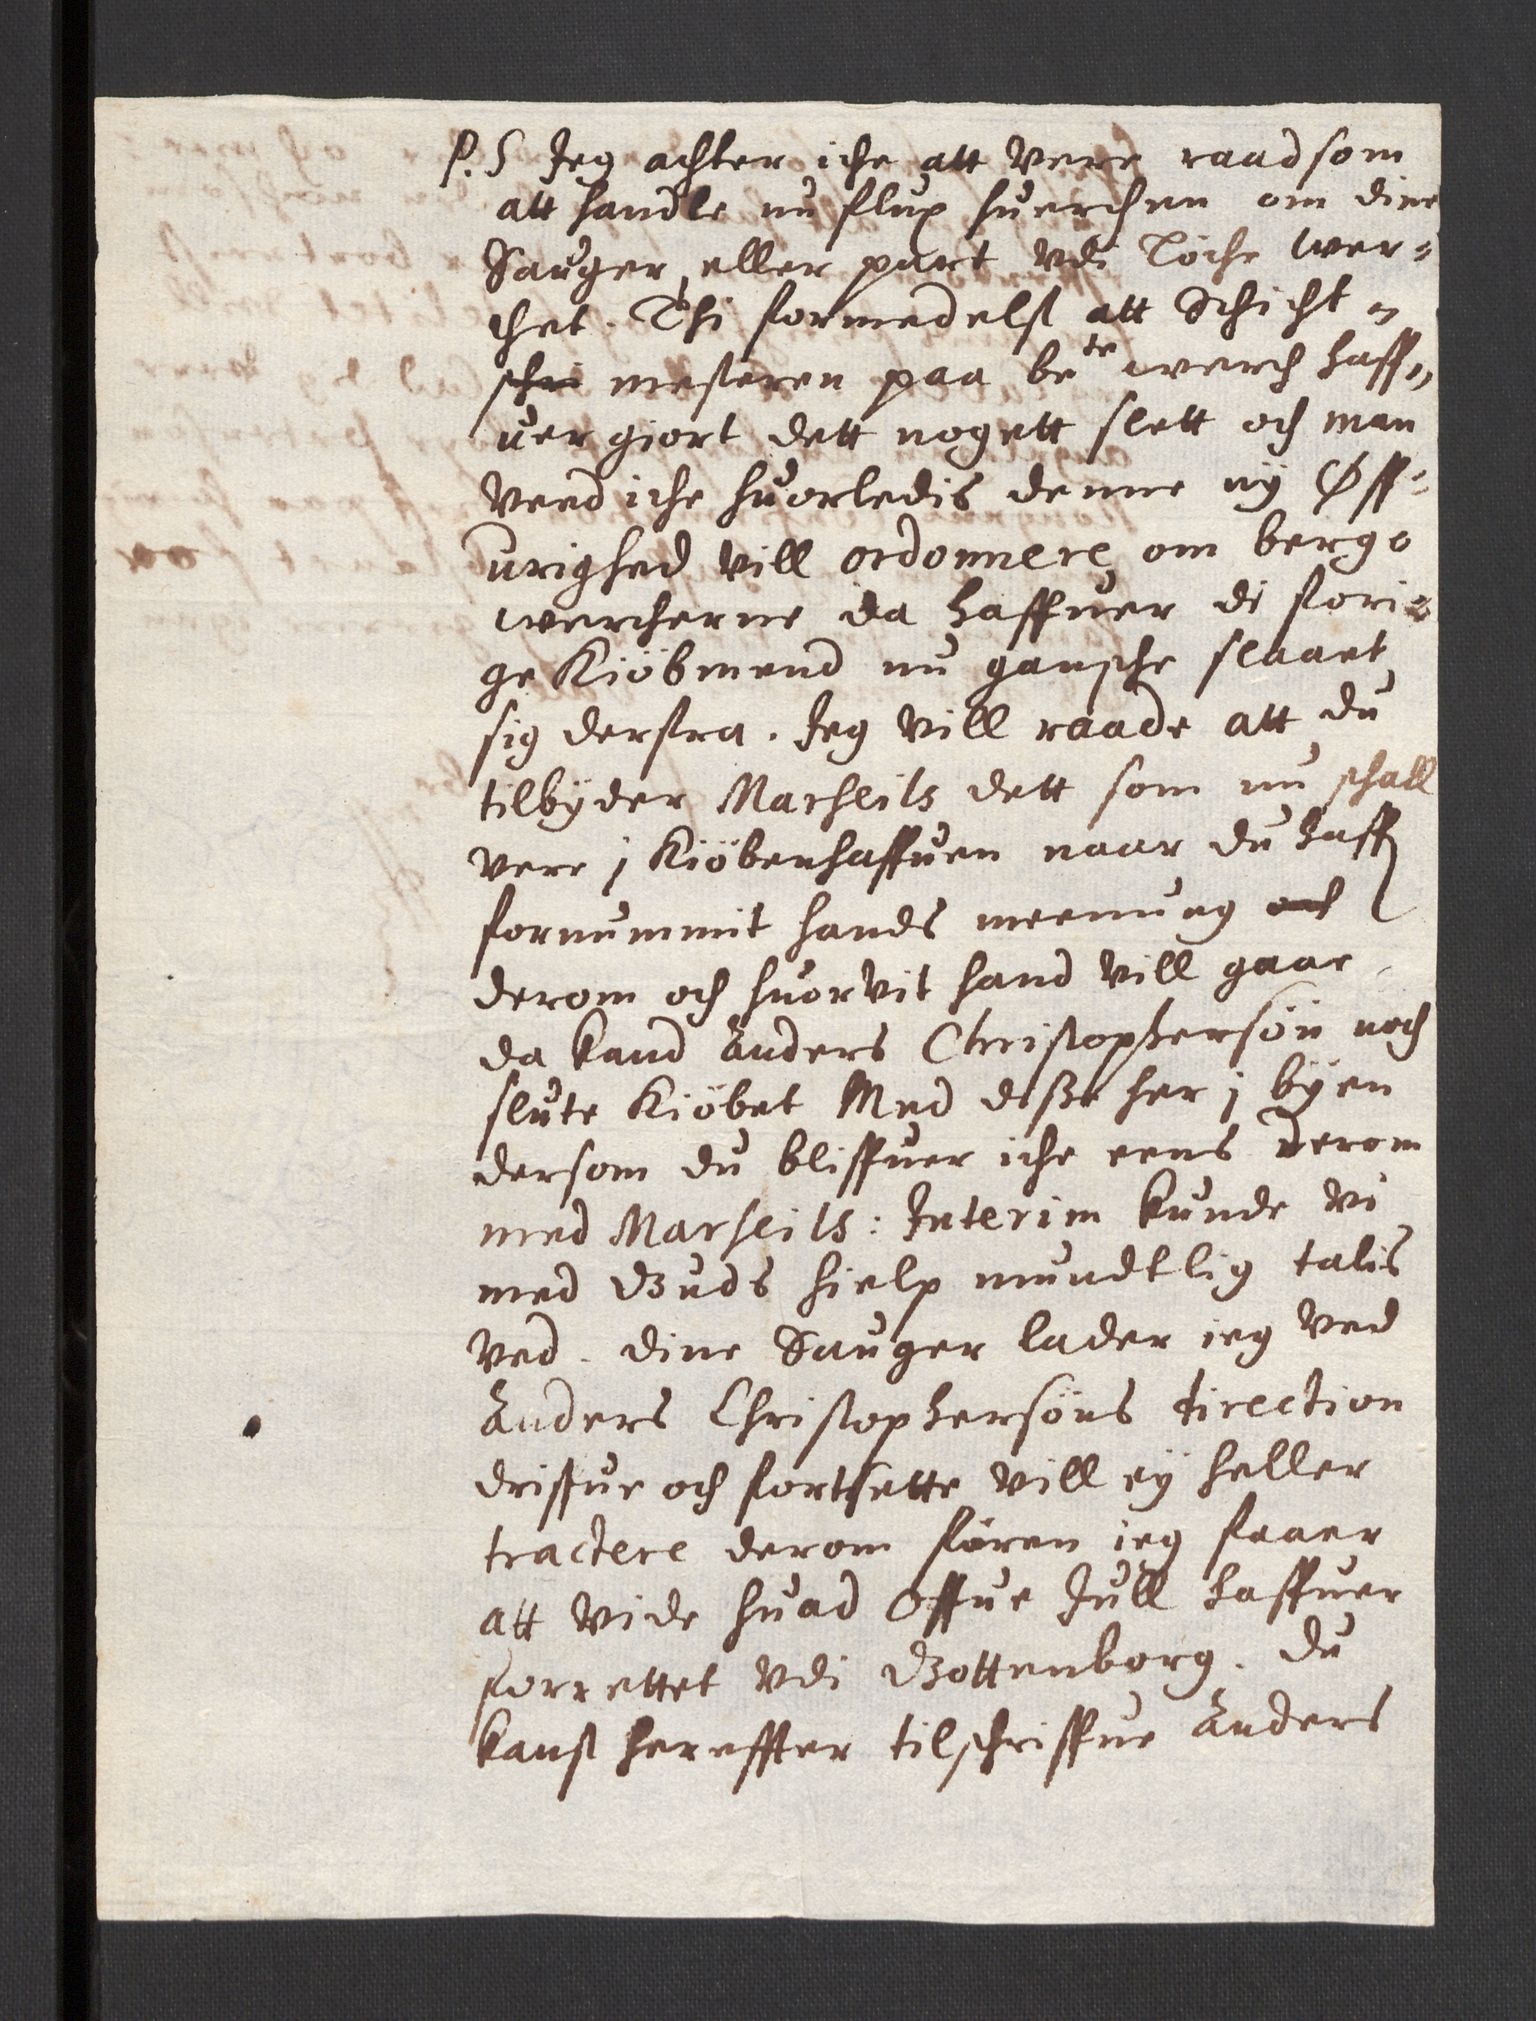 P.S Jeg achter iche att vere raadsom
att handle nu flux huerchen om dine
Sauger, eller part vdi Löche wer-
chet. Thi formedelst att Schicht-
meesteren paa bete werch haff-
uer giort dett nogett slett och man
veed iche huorledis denne ny Øff-
urighed vill ordonnere om berg
wercherne da haffuer di fori-
ge Kiöbmend nu gansche slaaet
sig derfra. Jeg vill raade att du
tilbyder Marseils dett som nu schall
vere j Kiöbenhaffuen naar du haffr
fornummit hands meenung
derom och huorvit hand vill gaae
da kand Anders Christophersön noch
slute Kiöbet Med disse her j byen
dersom du bliffuer iche eens derom
med Marseils: Interim kunde vi
med Guds hielp mundtlig talis
ved. dine Sauger lader ieg ved
Anders Christophersöns direction
driffue och fortsette vill ey heller
tractere derom fören ieg faaer
att vide huad Offue Jull haffuer
forrettet vdi Gottenborg. du
kanst hereffter tilschriffue Anders